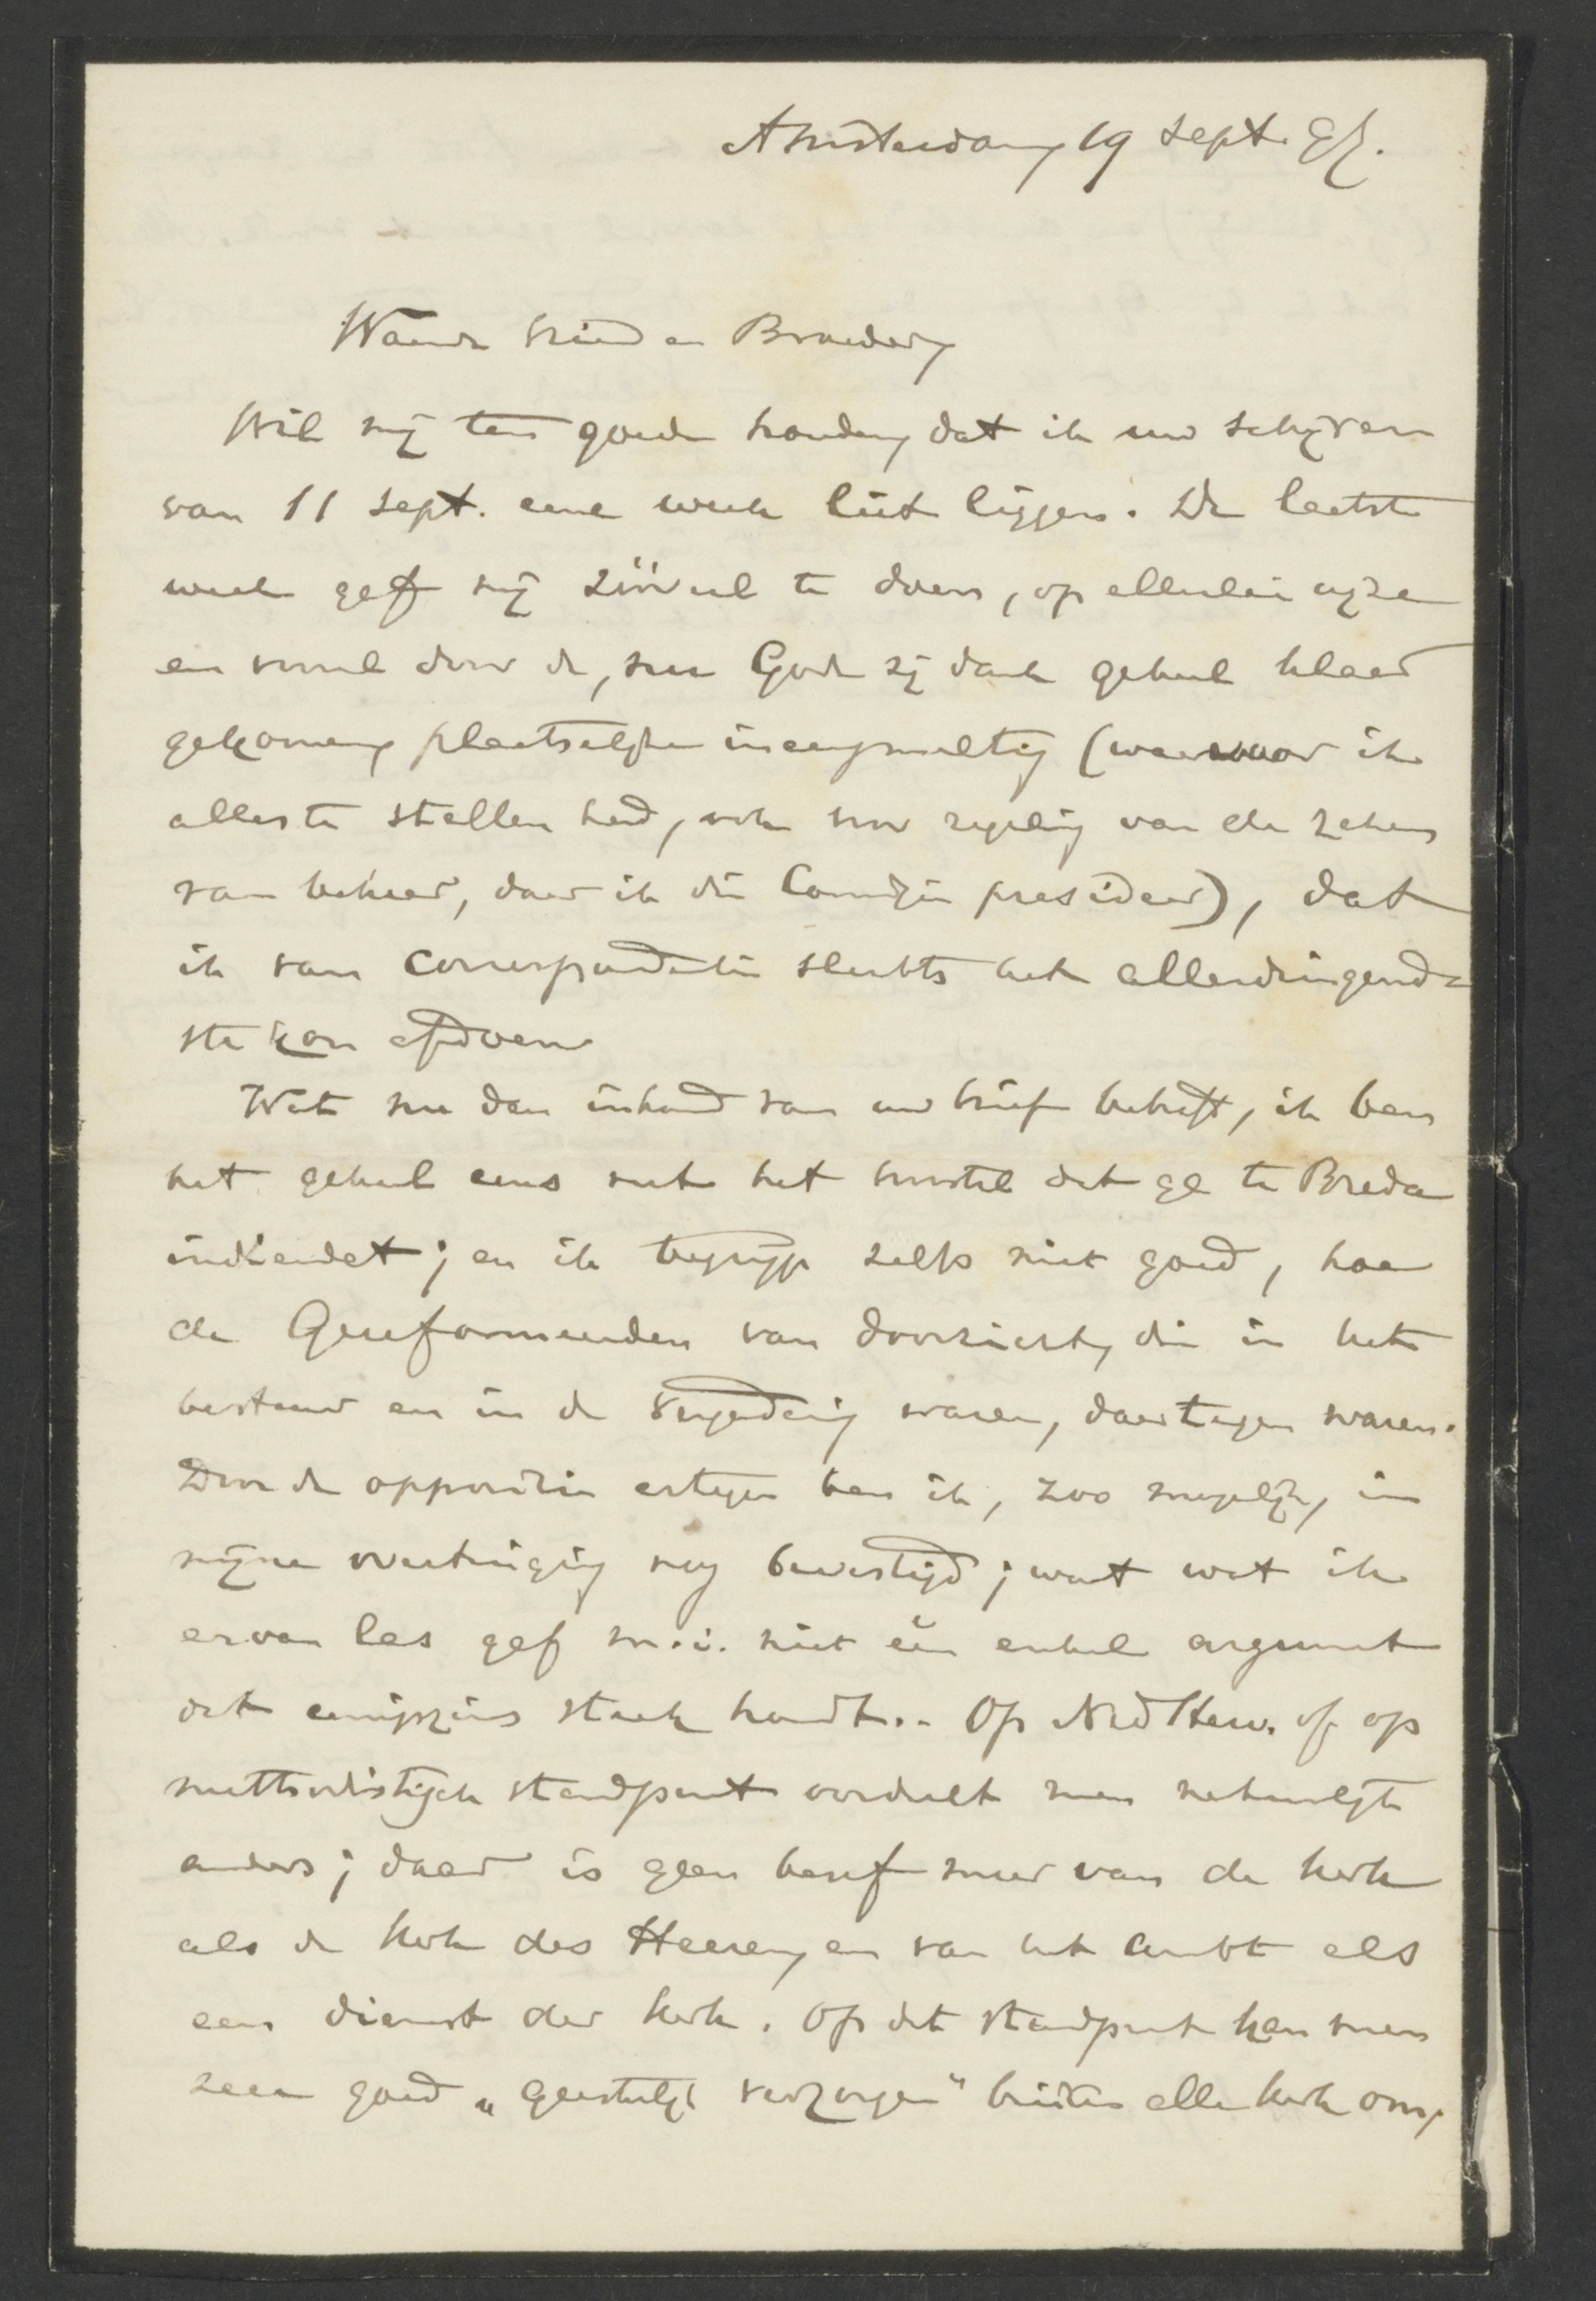 Amsterdam, 19 Sept. 93.
Waarde Vriend en Broeder,
Wil mij ten goede houden, dat ik uw schrijven
van 11 Sept. eene week liet liggen. De laatste
week gaf mij zóóveel te doen, op allerlei wijze
en vooral door de, nu Gode zij dank geheel klaar
gekomen, plaatselijke ineensmelting (waarvoor ik
alles te stellen had, ook voor regeling van de zaken
van beheer, daar ik die Commissie presideer), dat
ik van correspondentie slechts het allerdringend-
ste kon afdoen.
Wat nu den inhoud van uw brief betreft, ik ben
het geheel eens met het voorstel dat ge te Breda
indiendet; en ik begrijp zelfs niet goed, hoe
de Gereformeerden van doorzicht, die in het
bestuur en in de vergadering waren, daartegen waren.
Door de oppositie ertegen ben ik, zoo mogelijk, in
mijne overtuiging nog bevestigd; want wat ik
ervan las gaf m.i. niet één enkel argument
dat eenigszins steek houdt. Op Ned Herv. of op
methodistisch standpunt oordeelt men natuurlijk
anders; daar is geen besef meer van de kerk
als de kerk des Heeren, en van het ambt als
een dienst der kerk. Op dat standpunt kan men
zeer goed „geestelijk verzorgen" buiten alle kerk om,